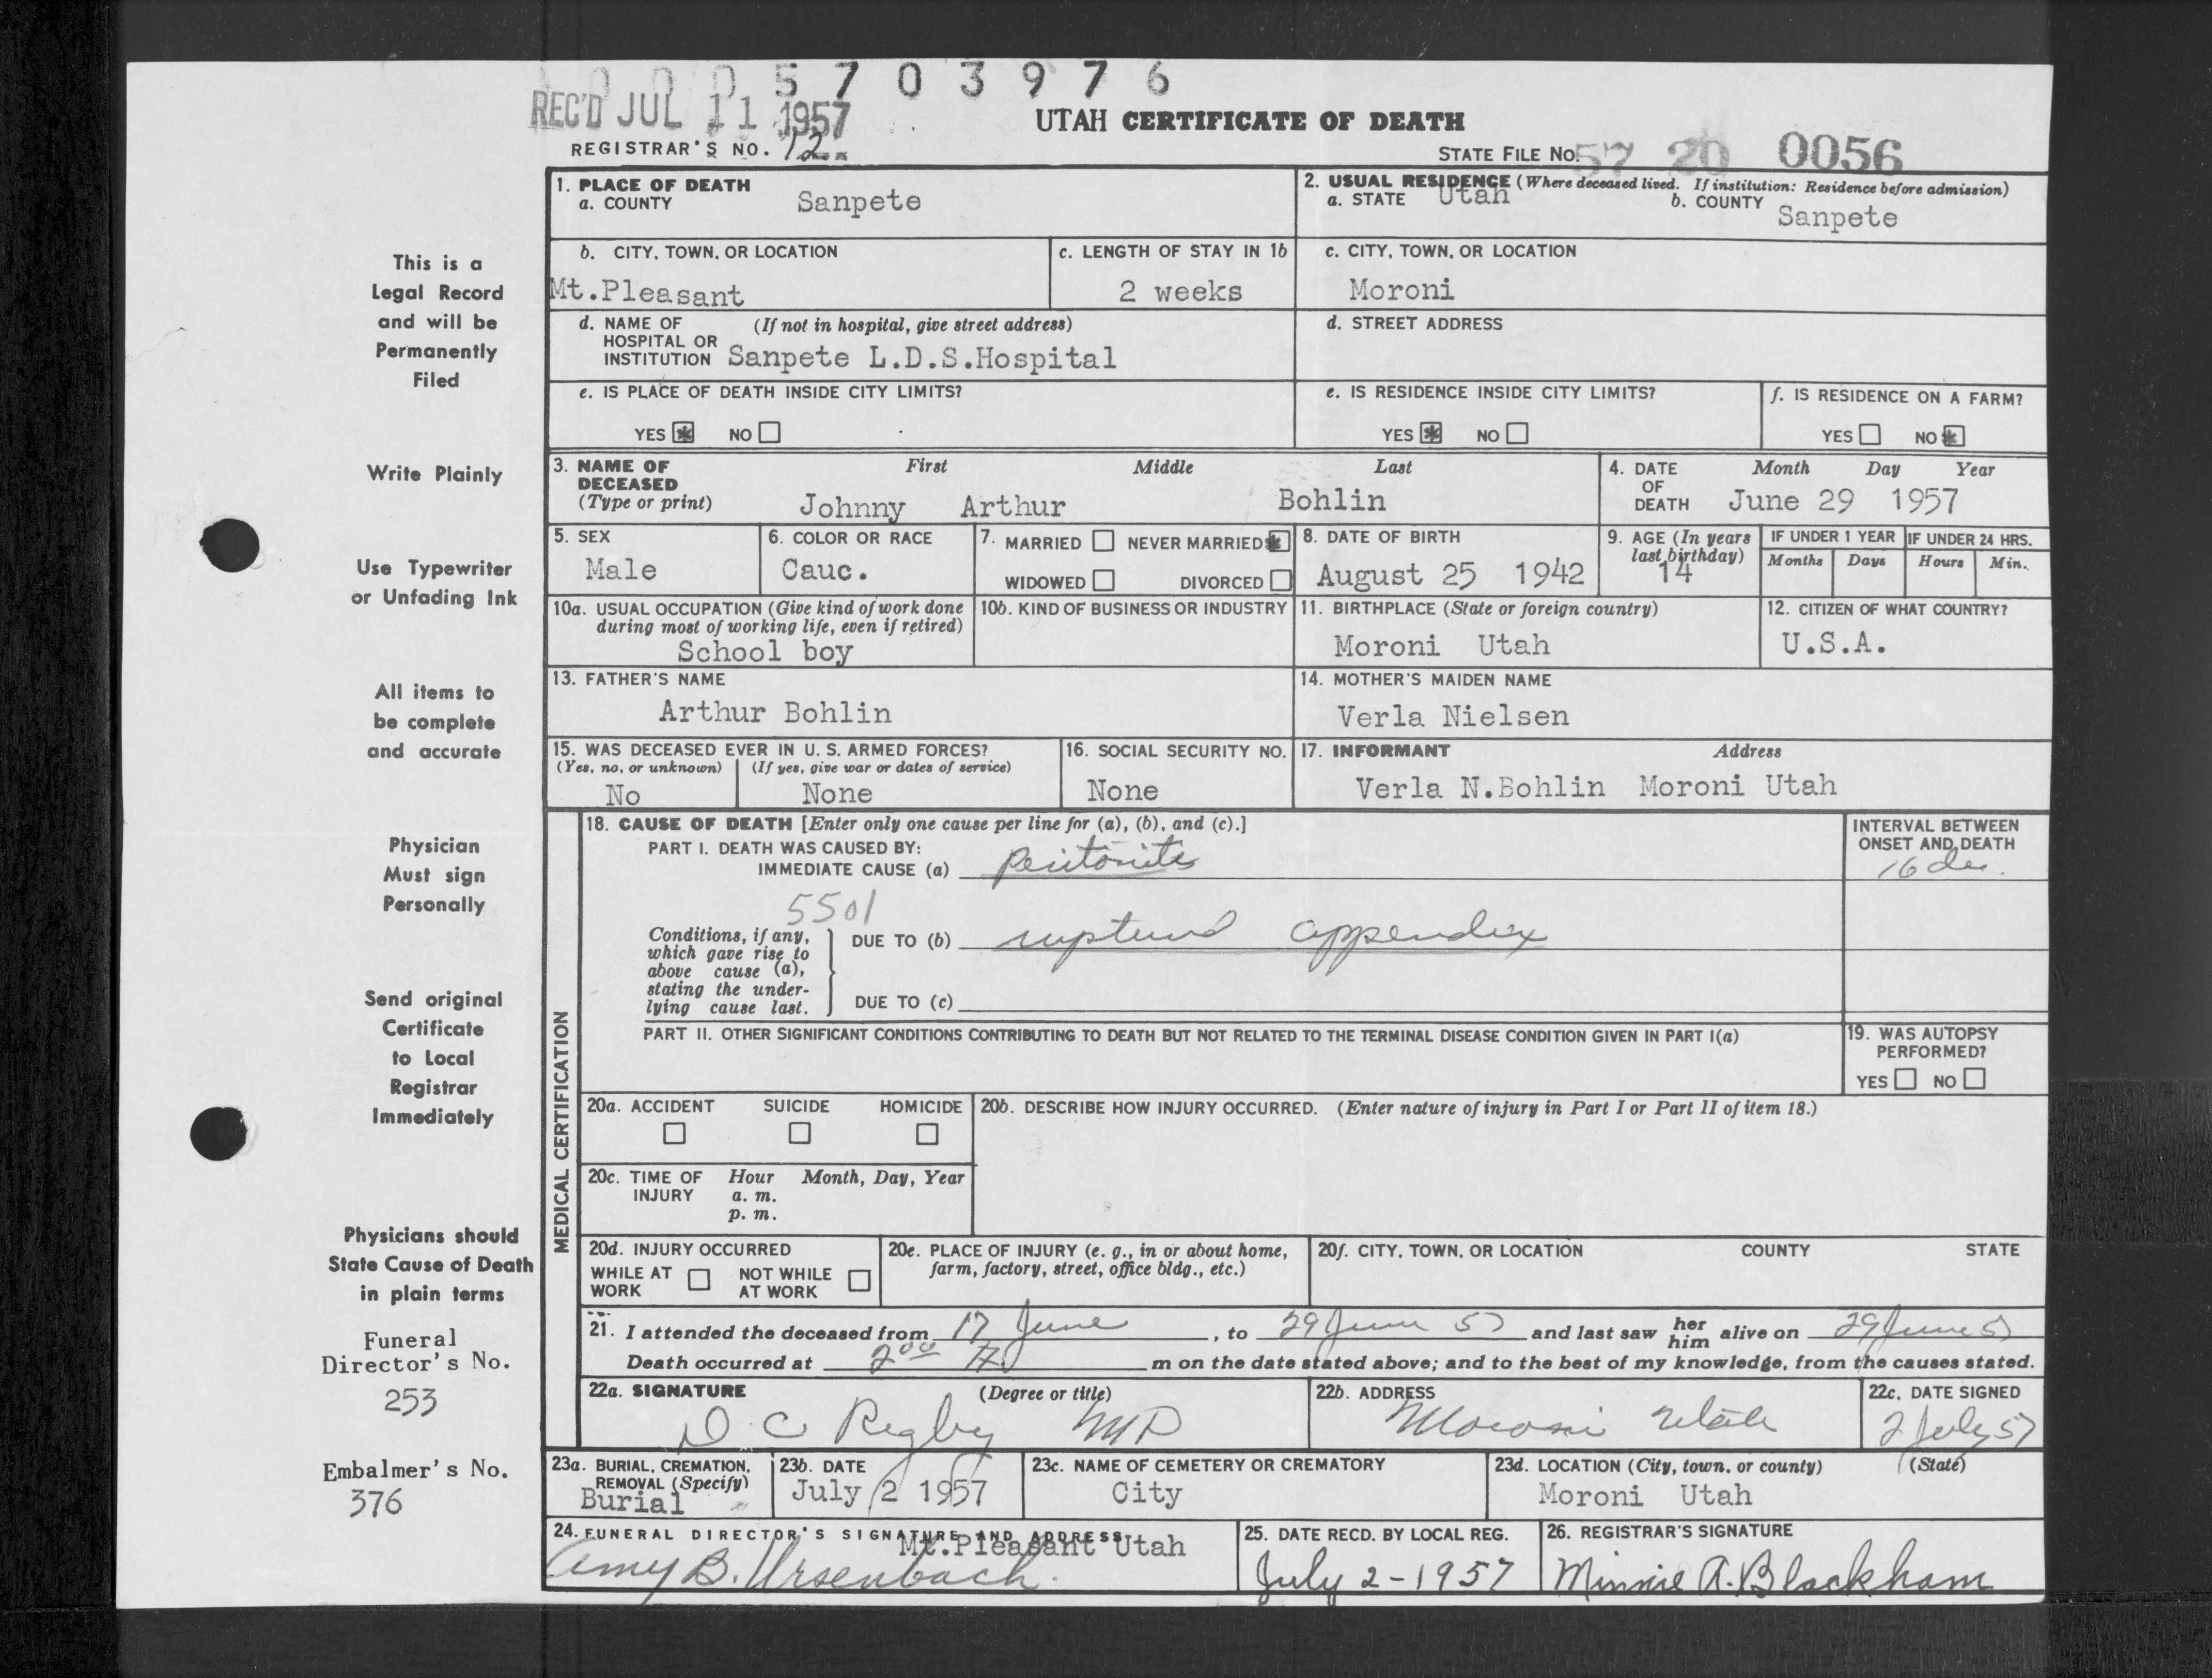 5703976
REC'D JUL 11 1957
UTAH CERTIFICATE OF DEATH
REGISTRAR'S NO. 12
STATE FILE No. 57 20 0056
1. PLACE OF DEATH
a. COUNTY Sanpete
2. USUAL RESIDENCE (Where deceased lived. If institution: Residence before admission)
a. STATE Utah b. COUNTY Sanpete
b. CITY, TOWN, OR LOCATION
Mt.Pleasant
c. LENGTH OF STAY IN 1b
2 weeks
c. CITY, TOWN, OR LOCATION
Moroni
d. NAME OF HOSPITAL OR INSTITUTION (If not in hospital, give street address)
Sanpete L.D.S.Hospital
d. STREET ADDRESS
e. IS PLACE OF DEATH INSIDE CITY LIMITS?
YES NO
e. IS RESIDENCE INSIDE CITY LIMITS?
YES NO
f. IS RESIDENCE ON A FARM?
YES NO
3. NAME OF DECEASED (Type or print)
First Middle Last
Johnny Arthur Bohlin
4. DATE OF DEATH Month Day Year
June 29 1957
5. SEX
Male
6. COLOR OR RACE
Cauc.
7. MARRIED NEVER MARRIED
WIDOWED DIVORCED
8. DATE OF BIRTH
August 25 1942
9. AGE (In years last birthday)
14
IF UNDER 1 YEAR
Months Days
IF UNDER 24 HRS.
Hours Min.
10a. USUAL OCCUPATION (Give kind of work done during most of working life, even if retired)
School boy
10b. KIND OF BUSINESS OR INDUSTRY
11. BIRTHPLACE (State or foreign country)
Moroni Utah
12. CITIZEN OF WHAT COUNTRY?
U.S.A.
13. FATHER'S NAME
Arthur Bohlin
14. MOTHER'S MAIDEN NAME
Verla Nielsen
15. WAS DECEASED EVER IN U. S. ARMED FORCES?
(Yes, no, or unknown) (If yes, give war or dates of service)
No None
16. SOCIAL SECURITY NO.
None
17. INFORMANT Address
Verla N.Bohlin Moroni Utah
MEDICAL CERTIFICATION
18. CAUSE OF DEATH [Enter only one cause per line for (a), (b), and (c).]
PART I. DEATH WAS CAUSED BY:
IMMEDIATE CAUSE (a) Peritonitis
INTERVAL BETWEEN ONSET AND DEATH
16
5501
Conditions, if any, which gave rise to above cause (a), stating the underlying cause last.
DUE TO (b) ruptured appendix
DUE TO (c)
PART II. OTHER SIGNIFICANT CONDITIONS CONTRIBUTING TO DEATH BUT NOT RELATED TO THE TERMINAL DISEASE CONDITION GIVEN IN PART I(a)
19. WAS AUTOPSY PERFORMED?
YES NO
20a. ACCIDENT SUICIDE HOMICIDE
20b. DESCRIBE HOW INJURY OCCURRED. (Enter nature of injury in Part I or Part II of item 18.)
20c. TIME OF INJURY Hour Month, Day, Year
a. m.
p. m.
20d. INJURY OCCURRED
WHILE AT WORK NOT WHILE AT WORK
20e. PLACE OF INJURY (e. g., in or about home, farm, factory, street, office bldg., etc.)
20f. CITY, TOWN, OR LOCATION COUNTY STATE
21. I attended the deceased from 17 June, to 29 June 57 and last saw her him alive on 29 June 57
Death occurred at 2 00 m on the date stated above; and to the best of my knowledge, from the causes stated.
22a. SIGNATURE (Degree or title)
D C Rigby MD
22b. ADDRESS
Moroni Utah
22c. DATE SIGNED
2 July 57
23a. BURIAL, CREMATION, REMOVAL (Specify)
Burial
23b. DATE
July 2 1957
23c. NAME OF CEMETERY OR CREMATORY
City
23d. LOCATION (City, town, or county) (State)
Moroni Utah
24. FUNERAL DIRECTOR'S SIGNATURE AND ADDRESS
Mt.Pleasant Utah
Amy B. Ursenbach.
25. DATE RECD. BY LOCAL REG.
July 2-1957
26. REGISTRAR'S SIGNATURE
Minnie A. Blackham
This is a
Legal Record
and will be
Permanently
Filed
Write Plainly
Use Typewriter
or Unfading Ink
All items to
be complete
and accurate
Physician
Must sign
Personally
Send original
Certificate
to Local
Registrar
Immediately
Physicians should
State Cause of Death
in plain terms
Funeral
Director's No.
253
Embalmer's No.
376